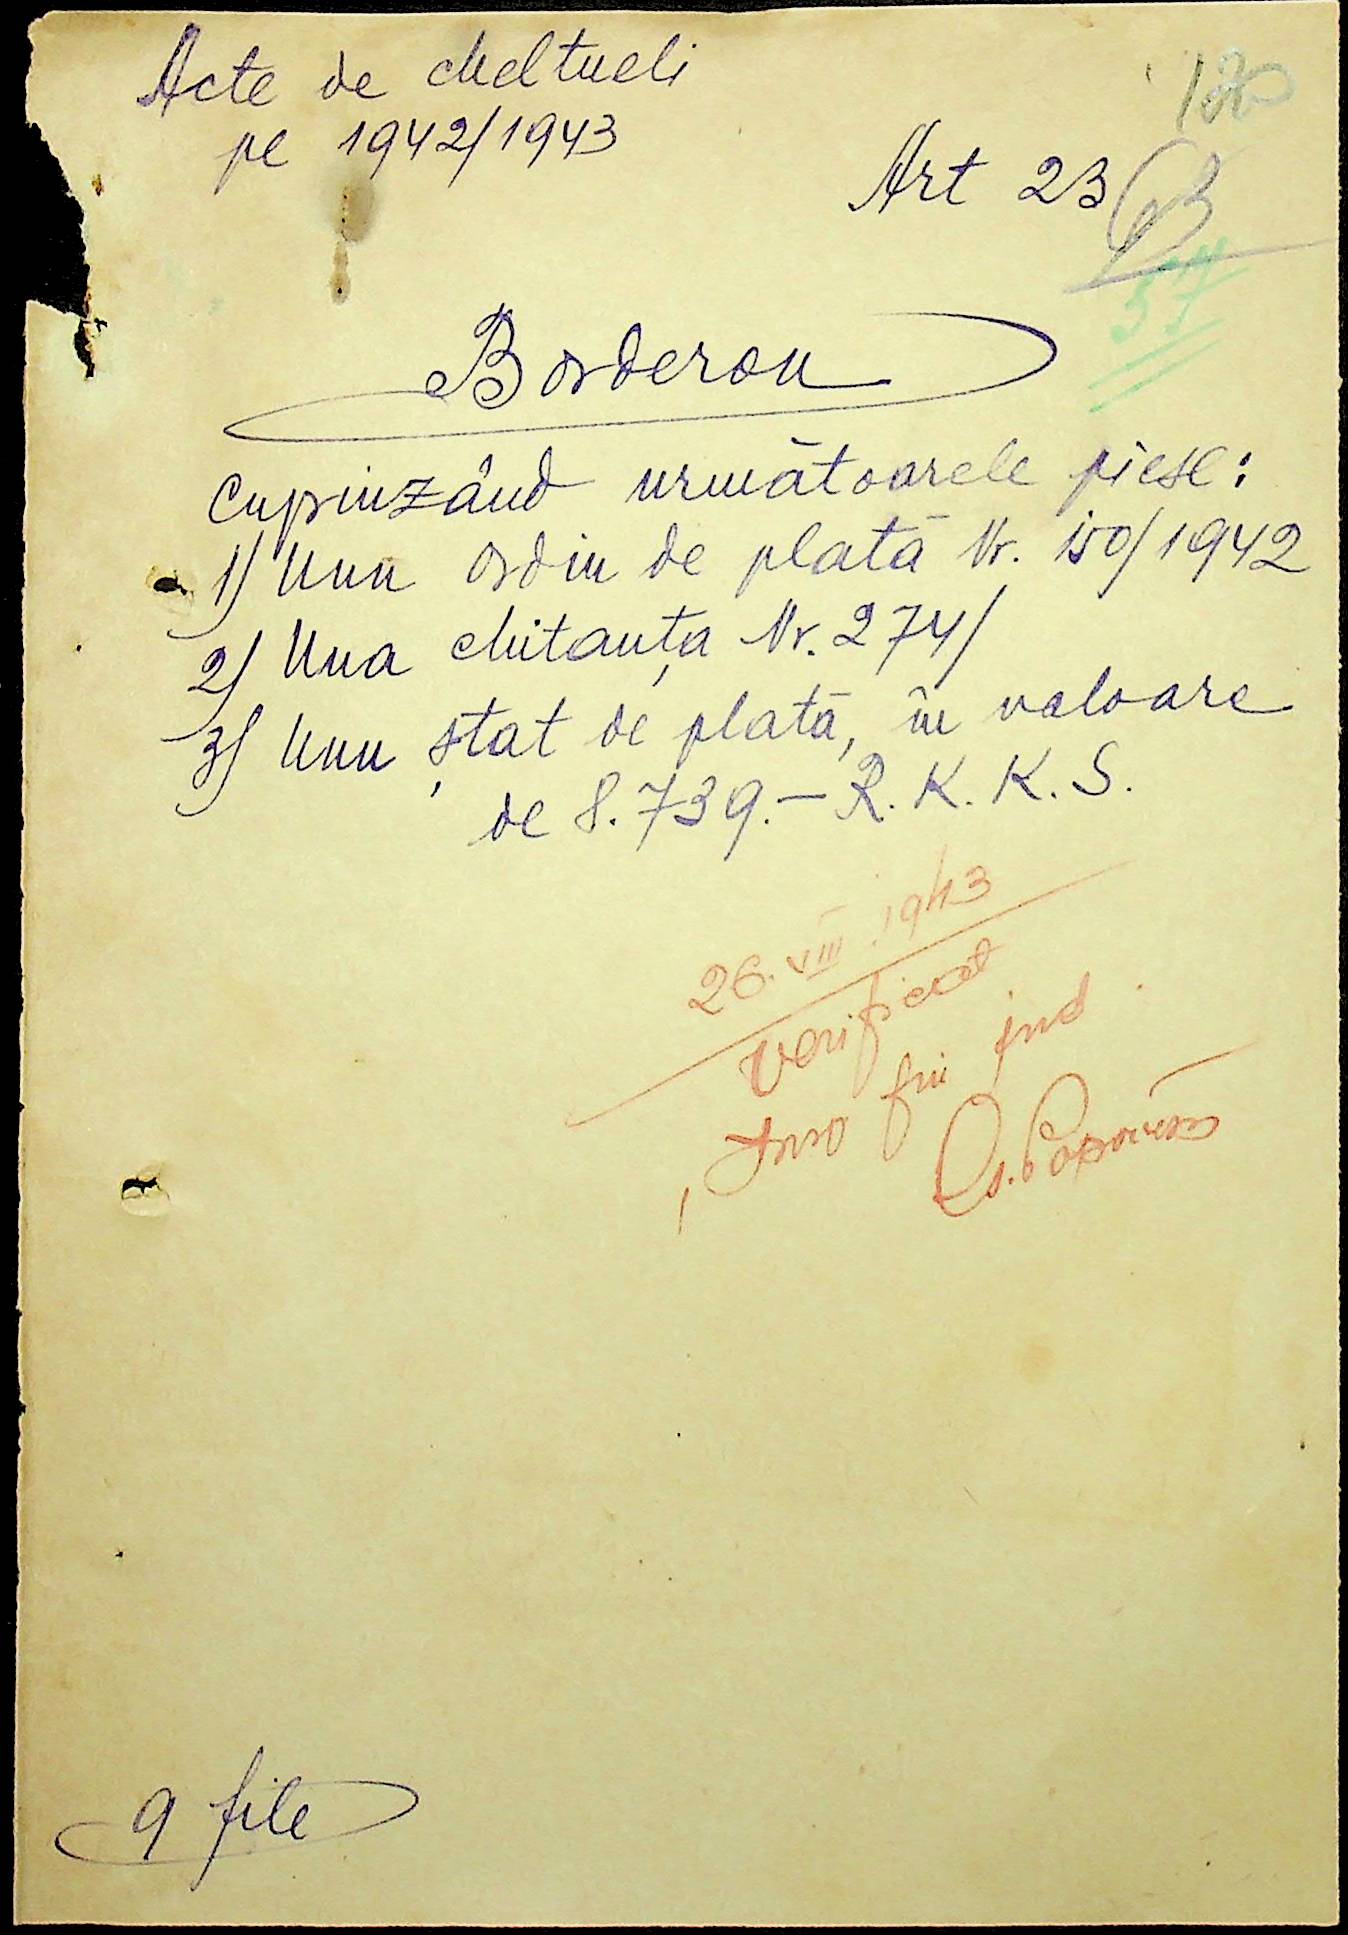 Acte de cheltueli
pe 1942/1943
120
Art 23
63
57
Borderou
cuprinzând următoarele piese:
1) Unu ordin de plată Nr. 150/1942
2) Una chitanța Nr. 274/
3) Unu ștat de plată, în valoare
de 8.739.- R. K. K. S.
26. VIII 1943
verificat
fin jud
Popovici
9 file